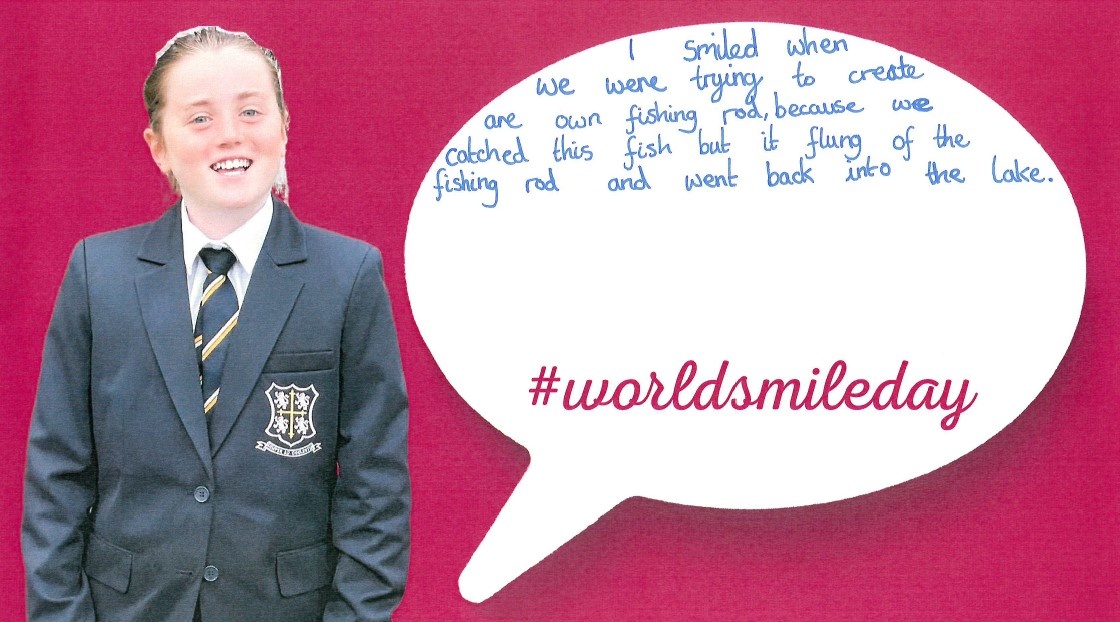 I smiled when
we were trying to create
are own fishing rod, because we
catched this fish but it flung of the
fishing rod and went back into the lake.
#worldsmileday